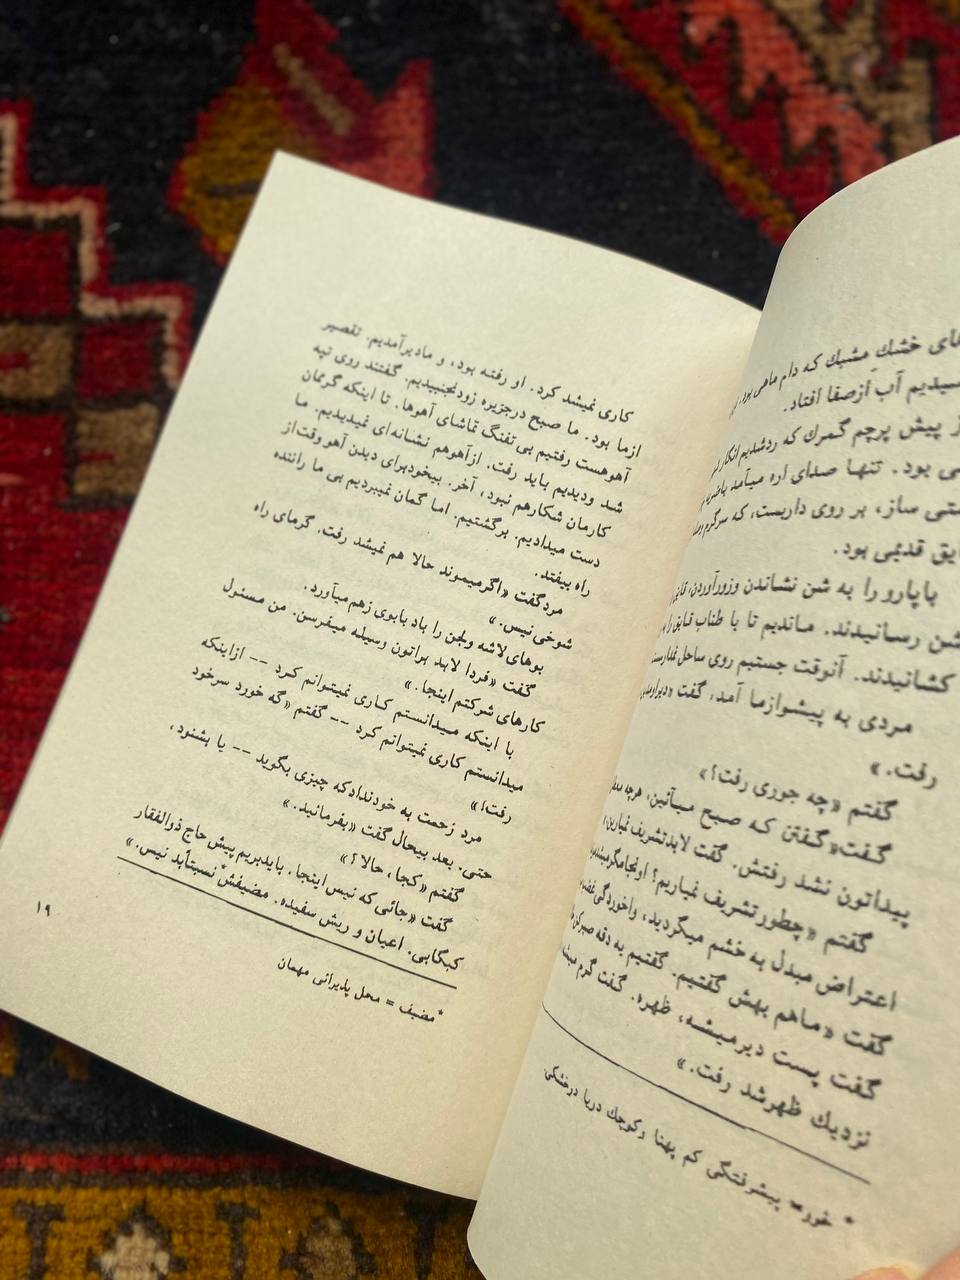 های خشك مشبك که دام ماهی بود.
سیدیم آب ازصفا افتاد.
ز پیش پرچم گمرك که ردشدیم انگار
می بود. تنها صدای اره میآمد
شتی ساز، بر روی داربست، که سرگرم
ایق قدیمی بود.
باپارو را به شن نشاندن وزورآوردن،
شن رسانیدند. ماندیم تا با طناب قایق را
کشانیدند. آنوقت جستیم روی ساحل
مردی به پیشوازما آمد، گفت
رفت.»
گفتم «چه جوری رفت؟»
گفت«گفتن که صبح میآئین، هرچه
پیداتون نشد رفتش. گفت لابدتشریف نمیارین.
گفتم «چطورتشریف نمیاریم؟
اعتراض مبدل به خشم میگردید، واخوردگی
گفت «ماهم بهش گفتیم. گفتیم یه دقه صبرکن
گفت پست دیرمیشه، ظهره. گفت گرم میشه
نزدیك ظهرشد رفت.»
* خور= پیشرفتگی کم پهنا وکوچك دریا درخشکی.
کاری نمیشد کرد. او رفته بود، و مادیرآمدیم. تقصیر
ازما بود. ما صبح درجزیره زودنجنبیدیم. گفتند روی تپه
آهوهست رفتیم بی‌تفنگ تماشای آهوها. تا اینکه گرممان
شد ودیدیم باید رفت. ازآهوهم نشانه‌ای نمیدیدیم. ما
کارمان شکارهم نبود، آخر. بیخودبرای دیدن آهو وقت از
دست میدادیم. برگشتیم. اما گمان نمیبردیم بی ما راننده
راه بیفتد.
مردگفت «اگرمیموند حالا هم نمیشد رفت. گرمای راه
شوخی نیس.»
بوهای لاشه ولجن را باد بابوی زهم میآورد.
گفت «فردا لابد براتون وسیله میفرسن. من مسئول
کارهای شرکتم اینجا.»
با اینکه میدانستم کاری نمیتوانم کرد -- ازاینکه
میدانستم کاری نمیتوانم کرد -- گفتم «گه خورد سرخود
رفت!»
مرد زحمت به خودندادکه چیزی بگوید -- یا بشنود،
حتی. بعد بیحال گفت «بفرمائید.»
گفتم «کجا، حالا؟»
گفت «جائی که نیس اینجا. بایدبریم پیش حاج ذوالفقار
کبگابی. اعیان و ریش سفیده. مضیفش* نسبتأبد نیس.»
* مضیف = محل پذیرائی مهمان
۱۹